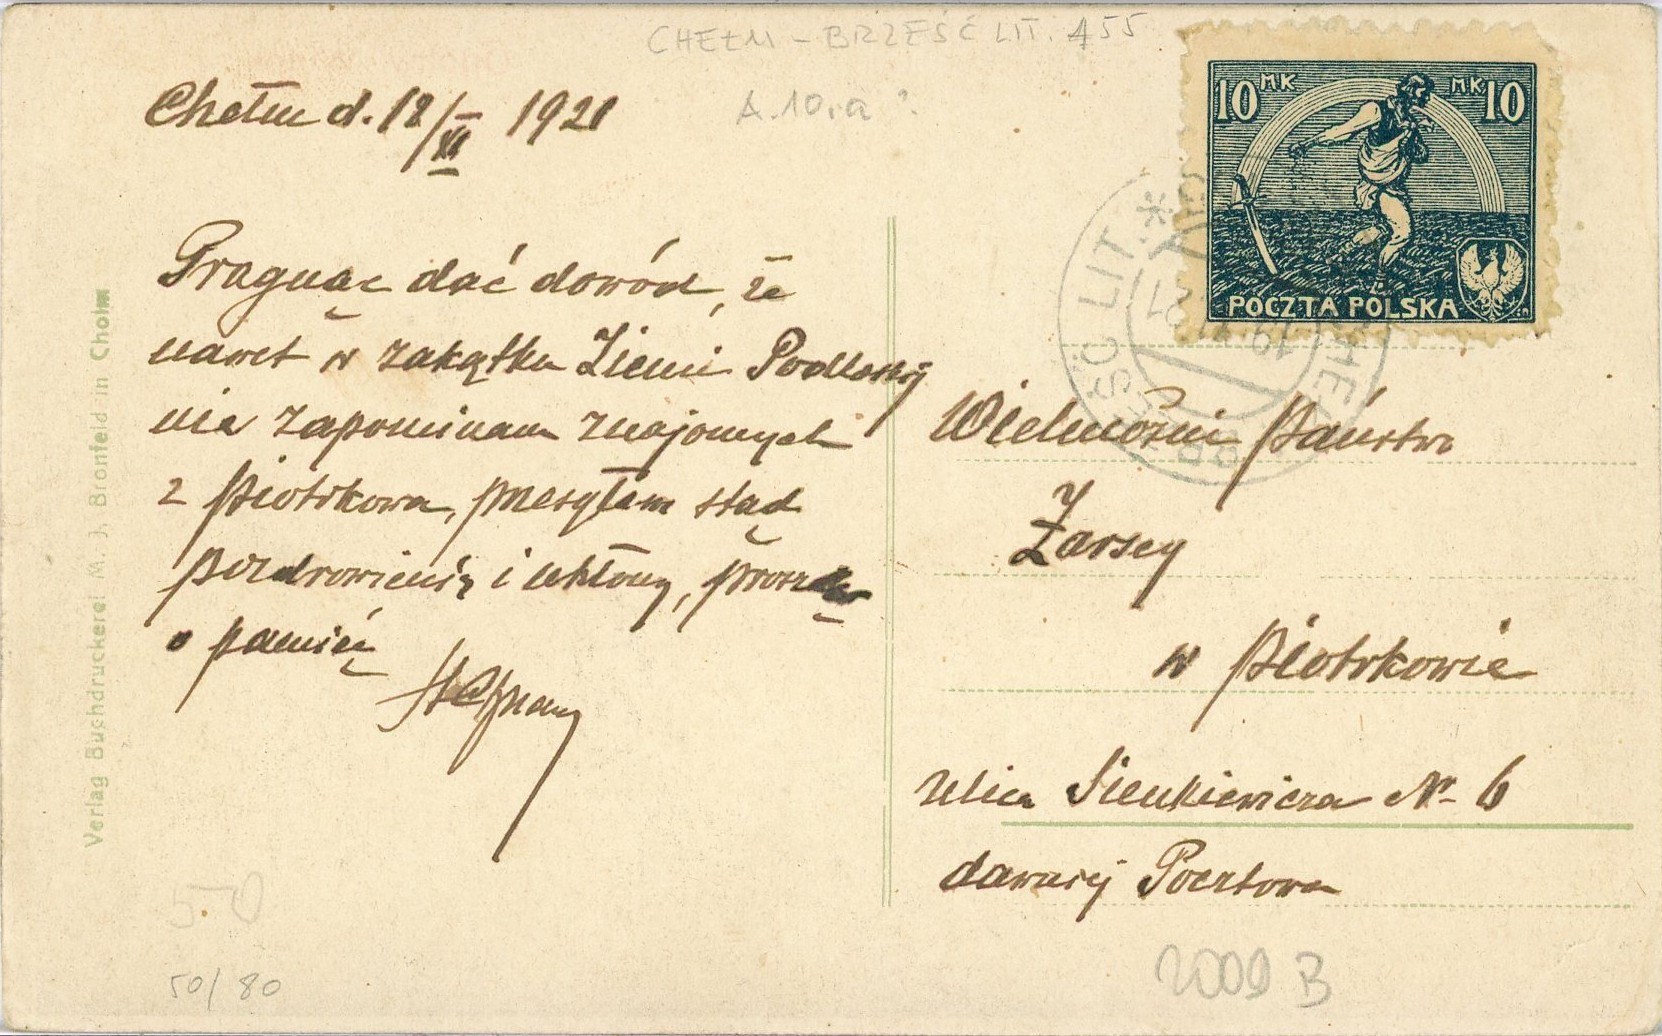 CHEŁM - BRZEŚĆ LIT. 455
A.10.a ?
Chełm d. 18/XI 1921
Pragnąc dać dowód, że
nawet w zakątku Ziemi Podlaskiej
nie zapominam znajomych
z Piotrkowa, przesyłam stąd
pozdrowienia i ukłony, prosząc
o pamięć
10 MK
MK 10
POCZTA POLSKA
BRZEŚĆ LIT. * CHEŁM
19. XI 21
Wielmożni Państwo
Żarscy
w Piotrkowie
ulica Sienkiewicza Nr 6
dawniej Pocztowa
Verlag Buchdruckerei M. J. Bronfeld in Cholm
50
50/80
2009 B